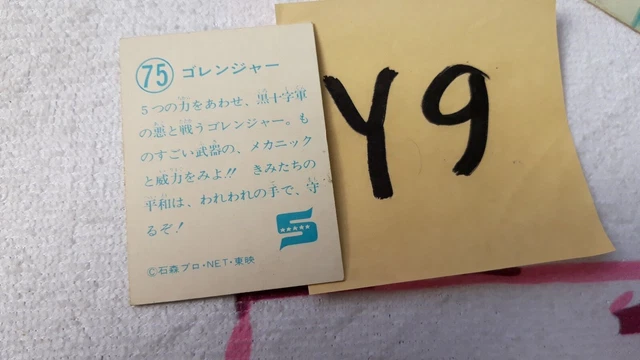 75 ゴレンジャー
5つの力をあわせ、黒十字軍
の悪と戦うゴレンジャー。も
のすごい武器の、メカニック
と威力をみよ!! きみたちの
平和は、われわれの手で、守
るぞ!
©石森プロ・NET・東映
Y9